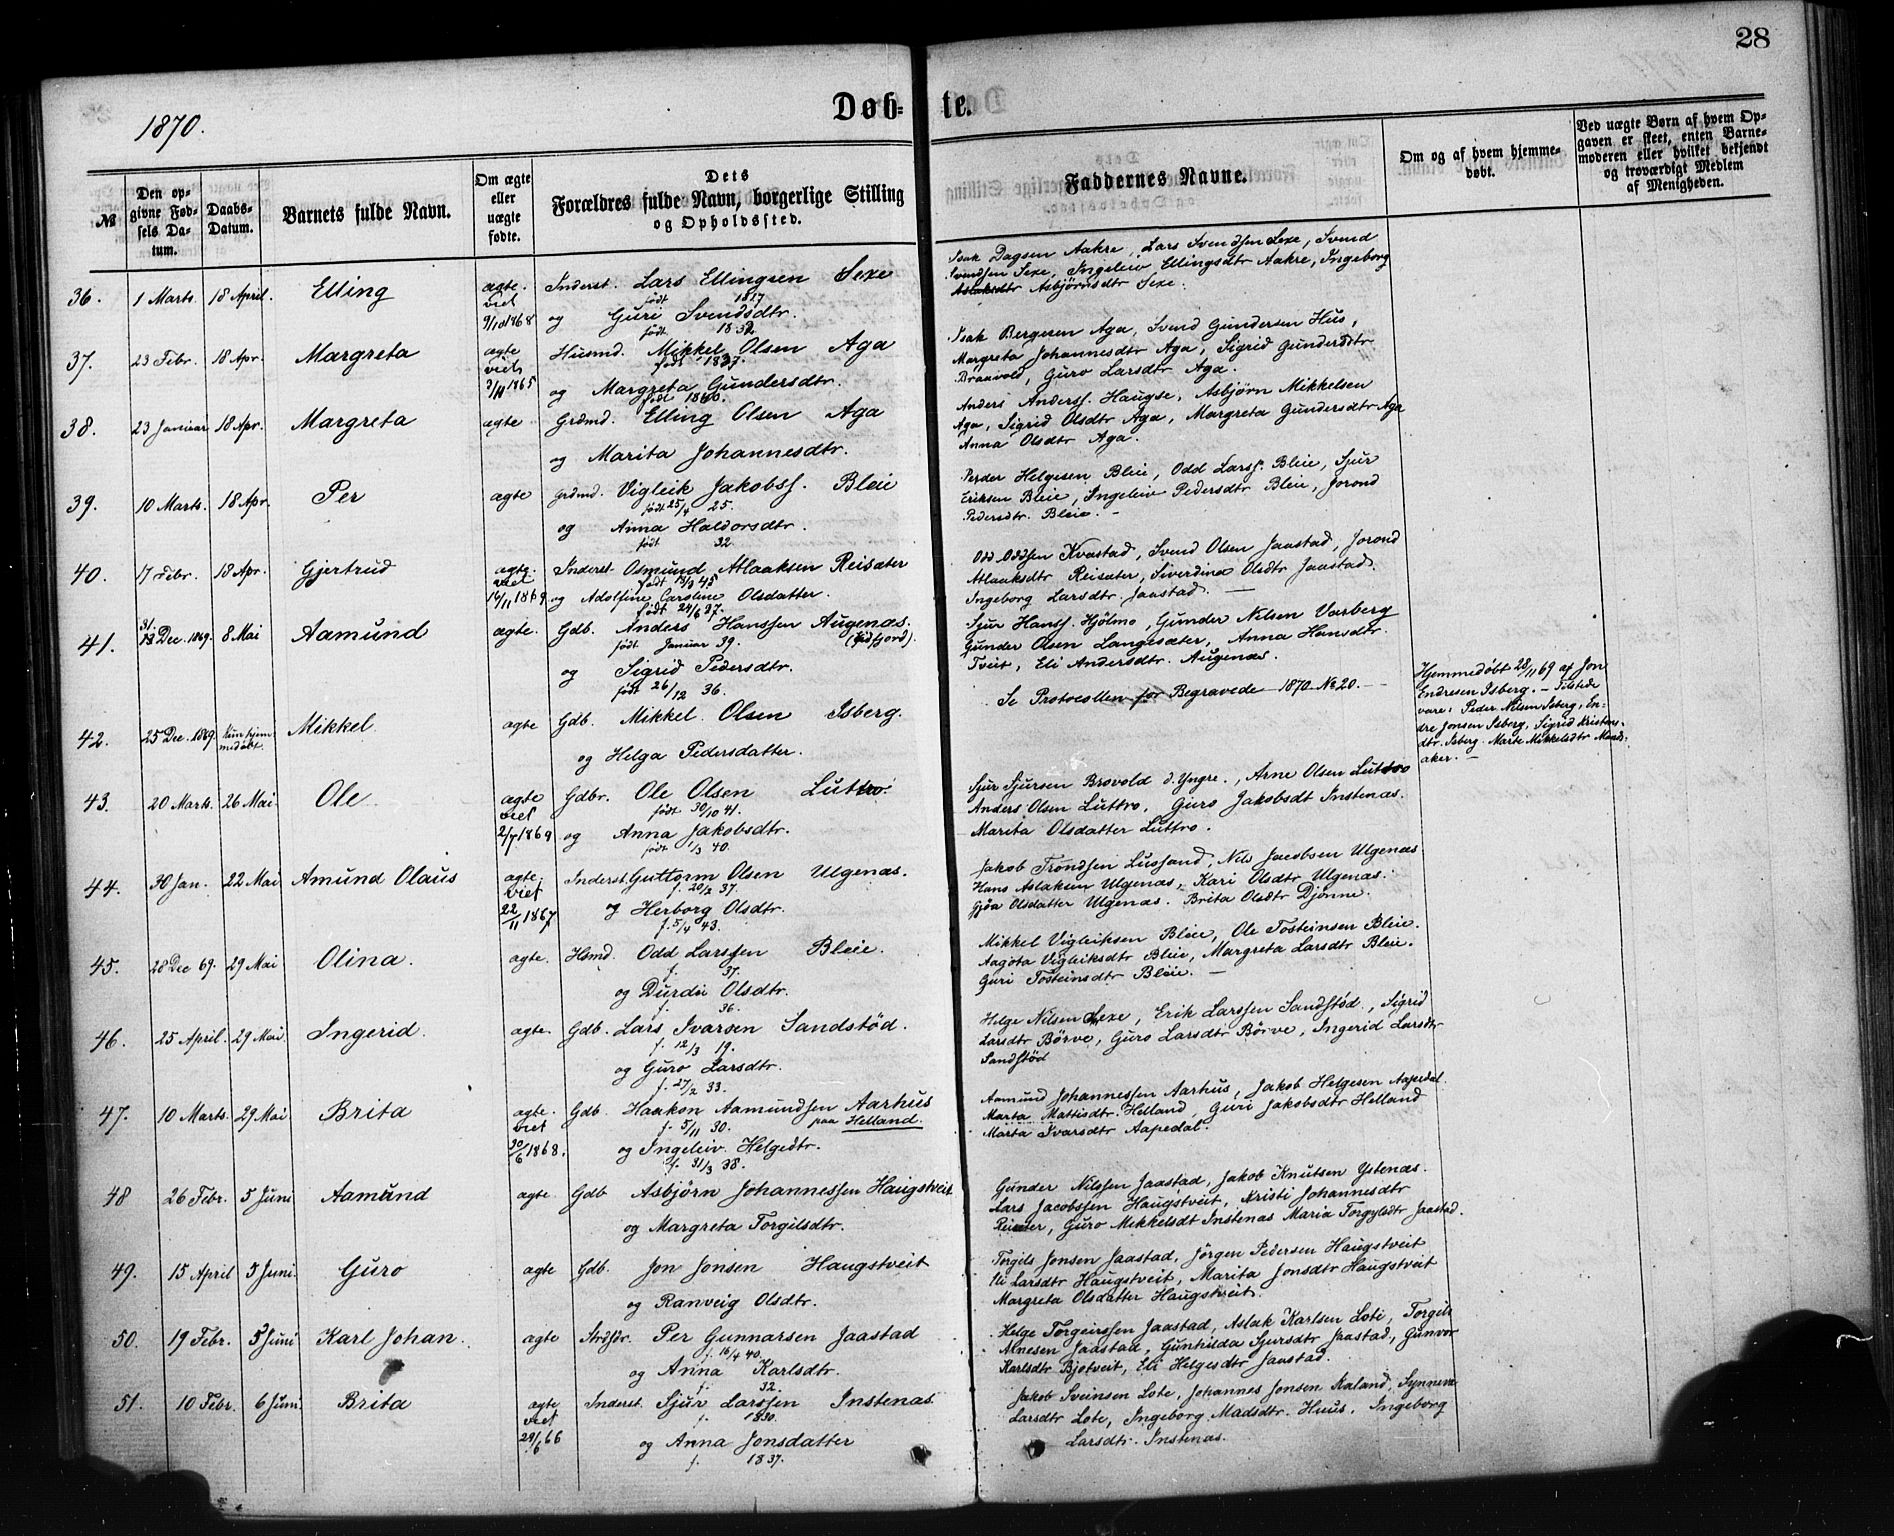 28
Døb- te.
1870.
№
Den opgivne Fødsels Datum.
Daabs-Datum.
Barnets fulde Navn.
Om ægte eller uægte fødte.
Dets Forældres fulde Navn, borgerlige Stilling og Opholdssted.
Faddernes Navne.
Om og af hvem hjemmedøbt.
Ved uægte Børn af hvem Opgaven er skeet, enten Barnemoderen eller hvilket bekjendt og troværdigt Medlem af Menigheden.
36. 1 Marts. 18 April. Elling ægte. viet 9/10 1868 Inderst. Lars Ellingsen Sexe
født 1817
og Guri Svendsdtr.
født 1832
Isak Dagsen Aakre, Lars Svendsen Sexe, Svend
Svendsen Sexe, Ingeleiv Ellingsdtr Aakre, Ingeborg
Aslaksdtr Asbjørnsdtr Sexe.
37. 23 Febr. 18 Apr. Margreta ægte viet 3/11 1865 Husmd. Mikkel Olsen Aga
født 1837.
og Margreta Gundersdtr.
født 1840.
Isak Bergesen Aga, Svend Gundersen Hus,
Margreta Johannesdtr Aga, Sigrid Gundersdtr
Braavold, Guro Larsdtr Aga.
38. 23 Januar 18 Apr. Margreta ægte Grdmd. Elling Olsen Aga
og Marita Johannesdtr.
Anders Anderss. Haugse, Asbjørn Mikkelsen
Aga, Sigrid Olsdtr Aga, Margreta Gundersdtr Aga
Anna Olsdtr Aga.
39. 10 Marts. 18 Apr. Per ægte Grdmd. Vigleik Jakobss. Bleie
født 25/4 25.
og Anna Haldorsdtr.
født 32.
Peder Helgesen Bleie, Odd Larss. Bleie, Sjur
Eriksen Bleie, Ingeleiv Pedersdtr Bleie, Jorond
Pedersdtr. Bleie. -
40. 17 Febr. 18 Apr. Gjertrud ægte. viet 14/11 1869 Inderst. Osmund Atlaaksen Reisæter
født 18/3 45
og Adolfine Caroline Olsdatter.
født 24/6 37.
Odd Oddsen Kvastad, Svend Olsen Jaastad, Jorond
Atlaaksdtr Reisæter, Siverdina Olsdtr Jaastad.
Ingeborg Larsdtr Jaastad. -
41. 31. 13 Dec. 1869. 8 Mai Aamund ægte. Gdb. Anders Hanssen Augenæs.
født Januar 39. (Eidfjord).
og Sigrid Pedersdtr.
født 26/12 36.
Sjur Hanss. Hjølmo, Gunder Nilsen Varberg
Gunder Olsen Langesæter, Anna Hansdtr.
Tveit, Eli Andersdtr. Augenæs.
42. 25 Dec. 1869. Kun hjemmedøbt. Mikkel ægte Gdb. Mikkel Olsen Isberg.
og Helga Pedersdatter.
Se Protocollen for Begravede 1870 No 20.
Hjemmedøbt 28/11 69 af Jon
Endresen Isberg. - Tilstede
vare: Peder Nilsen Isberg, En-
dre Jonsen Isberg, Sigrid Kristens-
dtr. Isberg. Marte Mikkelsdtr Mands-
aker. -
43. 20 Marts. 26 Mai Ole ægte viet 2/7 1869 Gdbr. Ole Olsen Luttro.
født 30/10 41.
og Anna Jakobsdtr.
født 1/3 40.
Sjur Sjursen Brovold d. Yngre., Arne Olsen Luttro
Anders Olsen Luttro, Guro Jakobsdt Instenæs.
Marita Olsdatter Luttro.
44. 30 Jan. 22 Mai Amund Olaus ægte. viet 22/11 1867 Inderst. Guttorm Olsen Ulgenæs.
f. 20/2 37.
og Herborg Olsdtr.
f. 5/4 43.
Jakob Trondsen Lussand, Nils Jacobsen Ulgenæs
Hans Aslaksen Ulgenæs, Kari Olsdtr Ulgenæs.
Gjøa Olsdatter Ulgenæs. Brita Olsdtr Djønne.
45. 28 Dec 69. 29 Mai Olina. ægte. Hsmd. Odd Larssen Bleie.
f. 37.
og Durdei Olsdtr.
f. 36.
Mikkel Vigleiksen Bleie, Ole Tosteinsen Bleie.
Aagota Vigleiksdtr Bleie, Margreta Larsdtr Bleie.
Guri Tosteinsdtr Bleie. -
46. 25 April. 29 Mai. Ingerid. ægte. Gdb. Lars Ivarsen Sandstød.
f. 12/3 19.
og Guro Larsdtr.
f. 27/2 33.
Helge Nilsen Sexe, Erik Larssen Sandstød., Sigrid
Larsdtr Børve, Guro Larsdtr Børve, Ingerid Larsdtr
Sandstød
47. 10 Marts. 29 Mai Brita ægte. viet 30/6 1868. Gdb. Haakon Aamundsen Aarhus
f. 5/11 30. paa Helland.
og Ingeleiv Helgedtr.
f. 31/3 38.
Aamund Johannessen Aarhus, Jakob Helgesen Aapedal.
Marta Mattisdtr. Helland, Guri Jakobsdtr Helland
Marta Ivarsdtr Aapedal.
48 26 Febr. 5 Juni Aamund ægte Gdb Asbjørn Johannessen Haugstveit
og Margreta Torgilsdtr.
Gunder Nilssen Jaastad, Jakob Knutsen Ystenæs.
Lars Jacobssen Haugstveit, Kristi Johannesdtr
Reisæter, Guro Mikkelsdt Instenæs Maria Torgylsdtr Jaastad.
49. 15 April 5 Juni. Guro ægte Gdb. Jon Jonsen Haugstveit
og Ranveig Olsdtr.
Torgils Jonsen Jaastad, Jørgen Pedersen Haugstveit
Eli Larsdtr Haugstveit, Marita Jonsdtr Haugstveit
Margreta Olsdatter Haugstveit.
50. 19 Febr. 5 Juni Karl Johan. ægte Per Gunnarsen Jaastad
f. 16/4 40.
og Anna Karlsdtr.
f. 32.
Helge Torgeirssen Jaastad, Aslak Karlsen Lote, Torgils
Arnesen Jaastad, Gunhilda Sjursdtr Jaastad., Gunvor
Karlsdtr Bjotveit, Eli Helgesdtr Jaastad.
51. 10 Febr. 6 Juni. Brita ægte viet 29/6 66 Inderst. Sjur Larssen Instenæs
f. 1830.
og Anna Jonsdatter
f. 1837.
Jakob Sveinsen Lote, Johannes Jonsen Kaland, Synneva
Larsdtr Lote, Ingeborg Madsdtr. Huus. Ingeborg
Larsdtr. Instenæs.